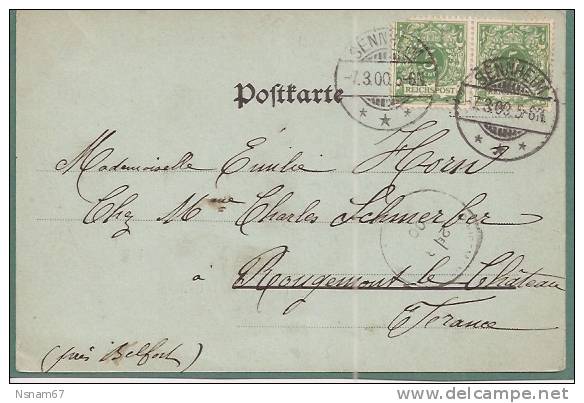 SENNHEIM
-7.3.00. 5-6N.
REICHSPOST
SENNHEIM
-7.3.00. 5-6N.
Postkarte
Mademoiselle Emilie Horn
Chez Mme Charles Schmerber
à Rougemont le Château
France
(près Belfort)
Nsnam67
delcampe.net